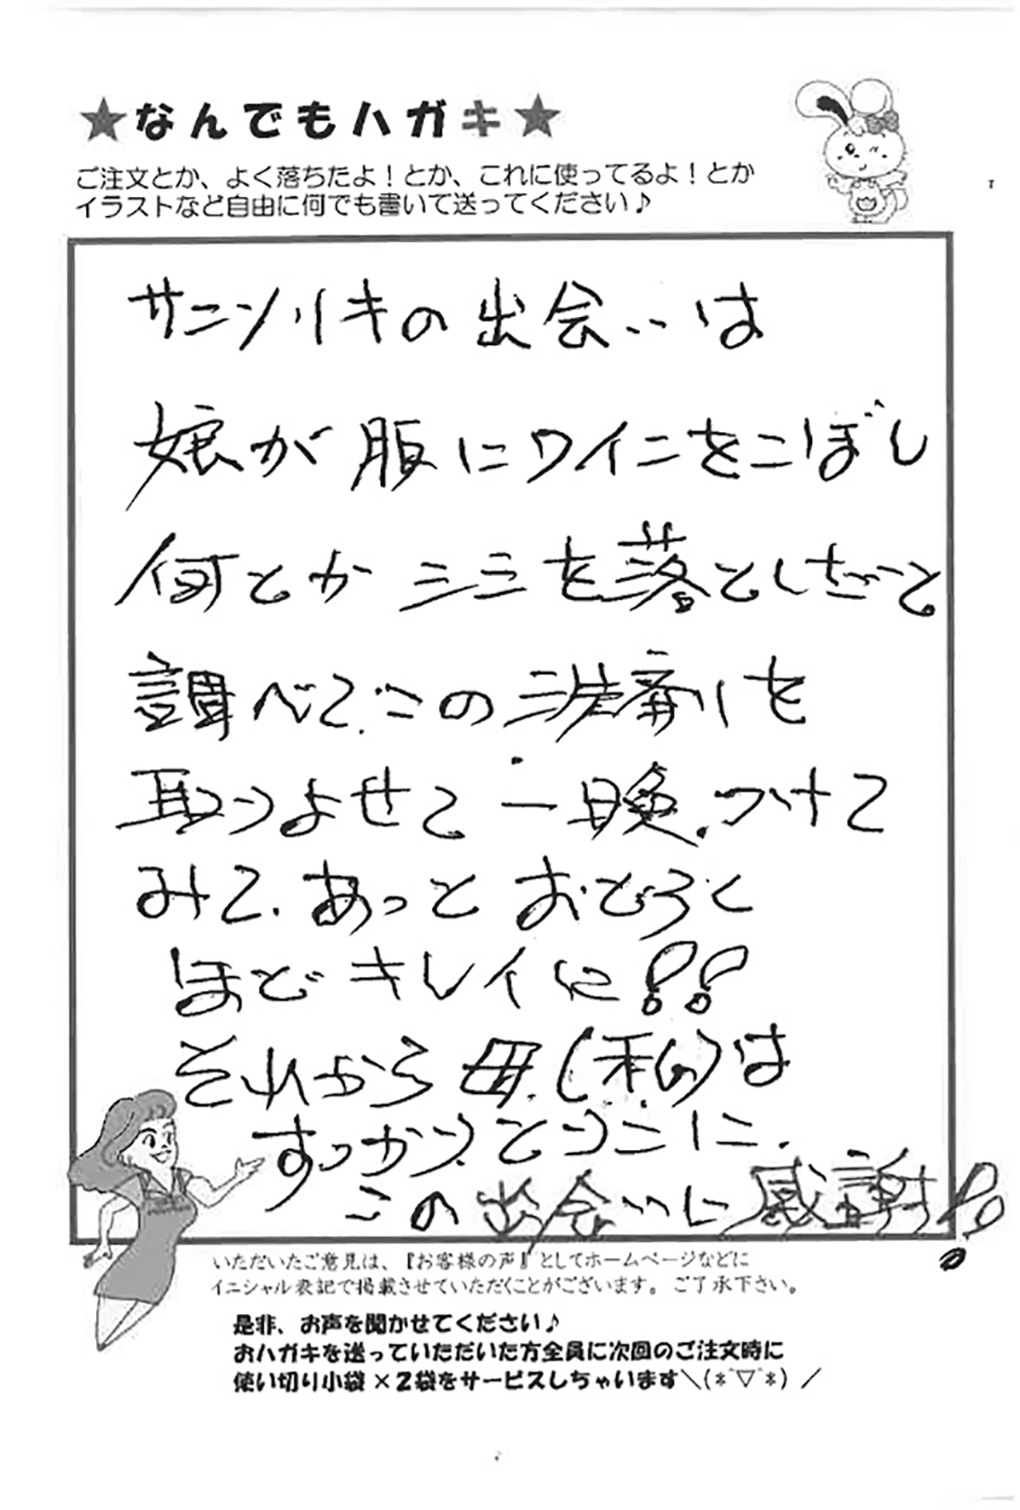 ★なんでもハガキ★
ご注文とか、よく落ちたよ！とか、これに使ってるよ！とか
イラストなど自由に何でも書いて送ってください♪
サンソリキの出会いは
娘が服にワインをこぼし
何とかシミを落としせと
調べて、この洗剤を
取りよせて一晩、つけて
みて、あっとおどろく
ほどキレイに！！
それから母(私)は
すっかりとりこに、
この出会いに感謝！！
いただいたご意見は、『お客様の声』としてホームページなどに
イニシャル表記で掲載させていただくことがございます。ご了承下さい。
是非、お声を聞かせてください♪
おハガキを送っていただいた方全員に次回のご注文時に
使い切り小袋×2袋をサービスしちゃいます＼(*ﾟ▽ﾟ*)／